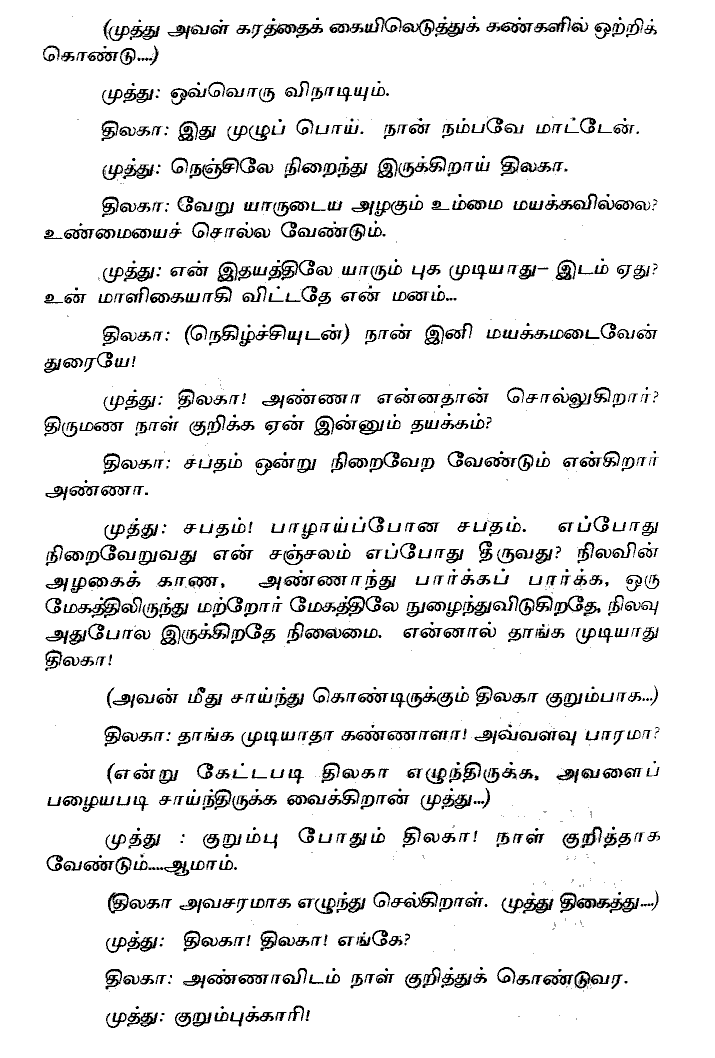 (முத்து அவள் கரத்தைக் கையிலெடுத்துக் கண்களில் ஒற்றிக்
கொண்டு....)
முத்து: ஒவ்வொரு விநாடியும்.
திலகா: இது முழுப் பொய். நான் நம்பவே மாட்டேன்.
முத்து: நெஞ்சிலே நிறைந்து இருக்கிறாய் திலகா.
திலகா: வேறு யாருடைய அழகும் உம்மை மயக்கவில்லை?
உண்மையைச் சொல்ல வேண்டும்.
முத்து: என் இதயத்திலே யாரும் புக முடியாது– இடம் ஏது?
உன் மாளிகையாகி விட்டதே என் மனம்...
திலகா: (நெகிழ்ச்சியுடன்) நான் இனி மயக்கமடைவேன்
துரையே!
முத்து: திலகா! அண்ணா என்னதான் சொல்லுகிறார்?
திருமண நாள் குறிக்க ஏன் இன்னும் தயக்கம்?
திலகா: சபதம் ஒன்று நிறைவேற வேண்டும் என்கிறார்
அண்ணா.
முத்து: சபதம்! பாழாய்ப்போன சபதம். எப்போது
நிறைவேறுவது என் சஞ்சலம் எப்போது தீருவது? நிலவின்
அழகைக் காண, அண்ணாந்து பார்க்கப் பார்க்க, ஒரு
மேகத்திலிருந்து மற்றோர் மேகத்திலே நுழைந்துவிடுகிறதே, நிலவு
அதுபோல இருக்கிறதே நிலைமை. என்னால் தாங்க முடியாது
திலகா!
(அவன் மீது சாய்ந்து கொண்டிருக்கும் திலகா குறும்பாக...)
திலகா: தாங்க முடியாதா கண்ணாளா! அவ்வளவு பாரமா?
(என்று கேட்டபடி திலகா எழுந்திருக்க, அவளைப்
பழையபடி சாய்ந்திருக்க வைக்கிறான் முத்து...)
முத்து : குறும்பு போதும் திலகா! நாள் குறித்தாக
வேண்டும்....ஆமாம்.
(திலகா அவசரமாக எழுந்து செல்கிறாள். முத்து திகைத்து....)
முத்து: திலகா! திலகா! எங்கே?
திலகா: அண்ணாவிடம் நாள் குறித்துக் கொண்டுவர.
முத்து: குறும்புக்காரி!